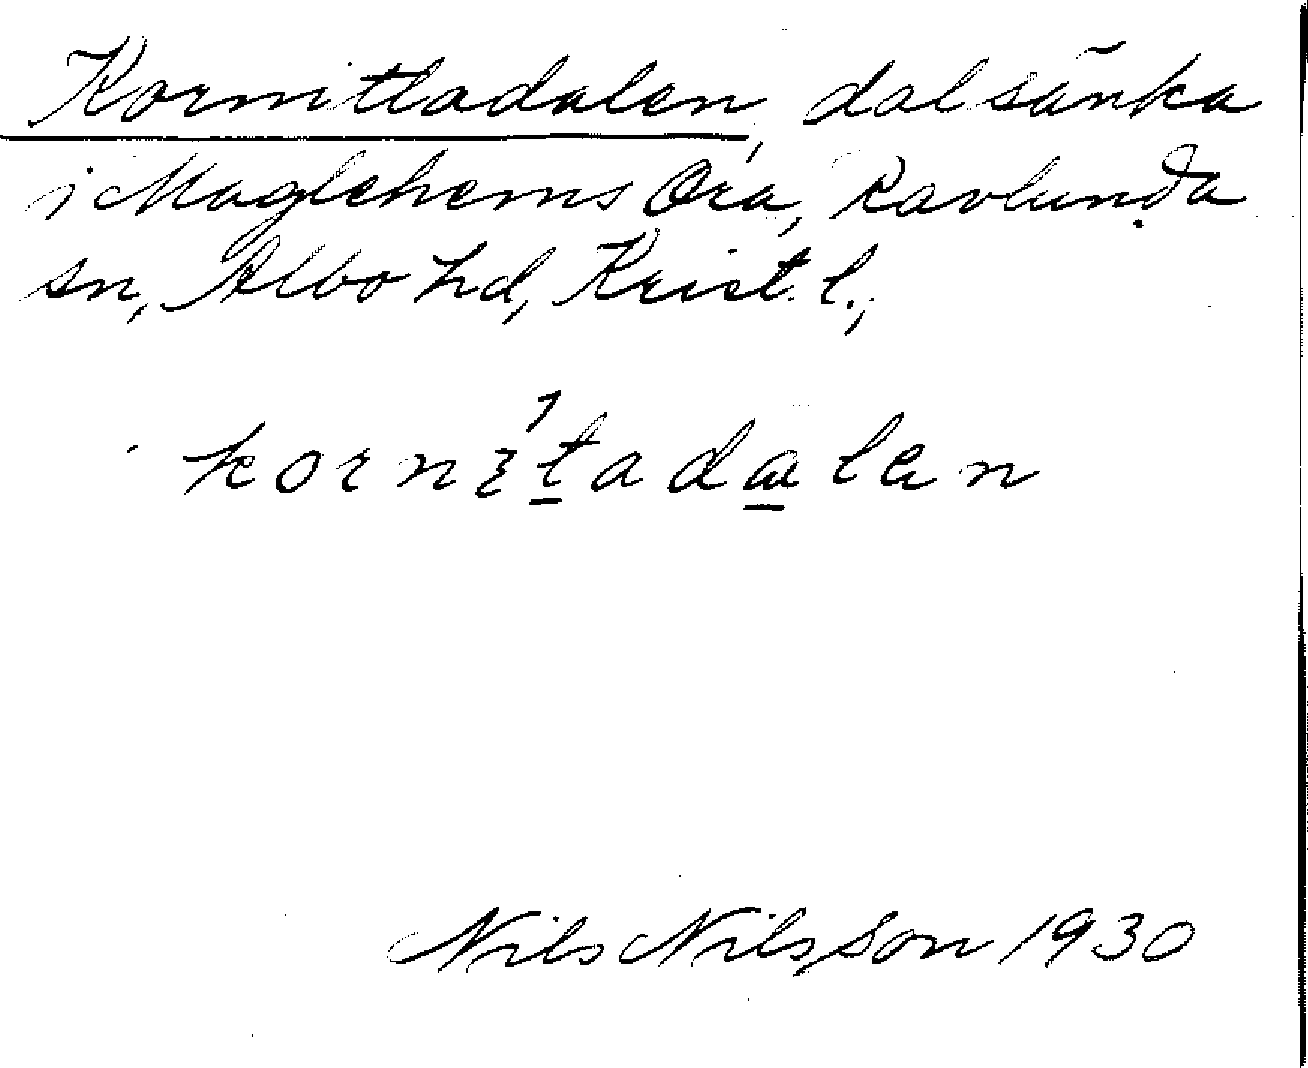 Kornittadalen, dalsänka
i Maglehems Ora, Ravlunda
sn, Albo hd, Krist. l.,
kornitadalen
Nils Nilsson 1930